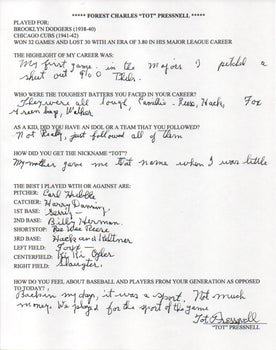 ***** FOREST CHARLES "TOT" PRESSNELL *****
PLAYED FOR:
BROOKLYN DODGERS (1938-40)
CHICAGO CUBS (1941-42)
WON 32 GAMES AND LOST 30 WITH AN ERA OF 3.80 IN HIS MAJOR LEAGUE CAREER
THE HIGHLIGHT OF MY CAREER WAS:
My first game in the Majors I pitched a
shut out 9 to 0
WHO WERE THE TOUGHEST BATTERS YOU FACED IN YOUR CAREER?
They were all tough, Reese, Hack, Fox
Walker
AS A KID, DID YOU HAVE AN IDOL OR A TEAM THAT YOU FOLLOWED?
Not Really, just followed all of them
HOW DID YOU GET THE NICKNAME "TOT"?
My mother gave me that name when I was little
THE BEST I PLAYED WITH OR AGAINST ARE:
PITCHER: Carl Hubble
CATCHER: Harry Danning
1ST BASE:
2ND BASE: Billy Herman
SHORTSTOP: Pee Wee Reese
3RD BASE: Hack and
LEFT FIELD:
CENTERFIELD:
RIGHT FIELD: Slaughter
HOW DO YOU FEEL ABOUT BASEBALL AND PLAYERS FROM YOUR GENERATION AS OPPOSED
TO TODAY?
Back in my day, it was a sport. Not much
money. We played for the sport of the game
Tot Pressnell
"TOT" PRESSNELL